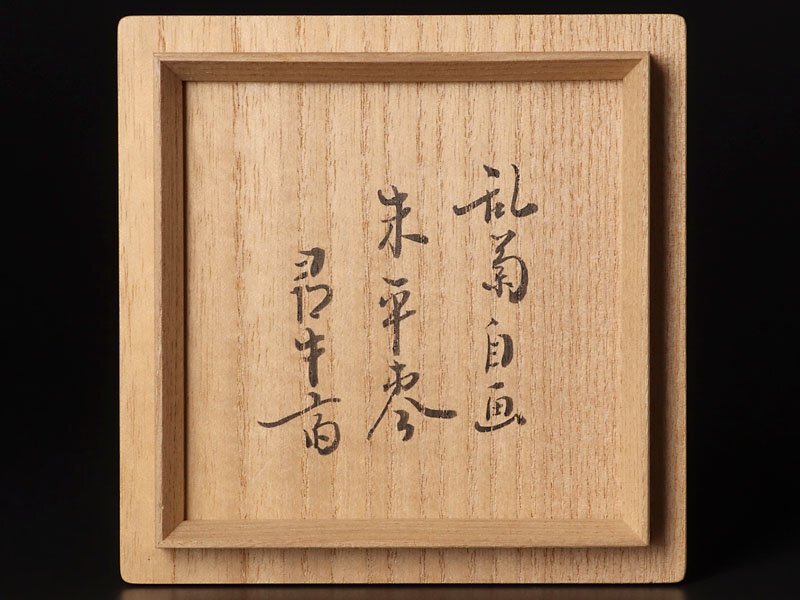 乱菊自画
朱平棗
尋牛斎